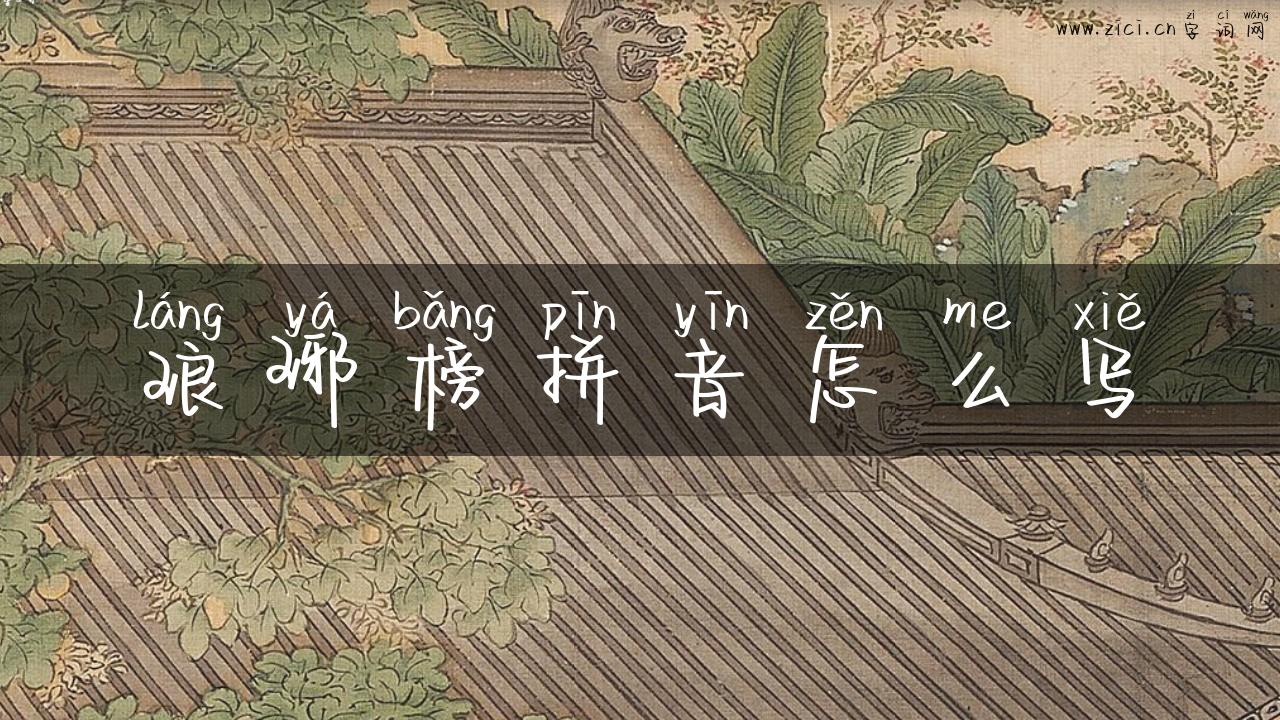 zì cí wǎng
www.zici.cn 字词网
láng yá bǎng pīn yīn zěn me xiě
琅琊榜拼音怎么写